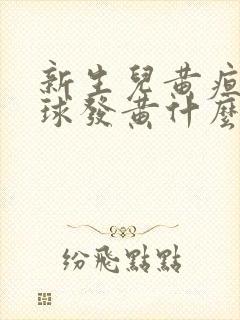 新生兒黃疸
球發黃什麼
紛飛點點